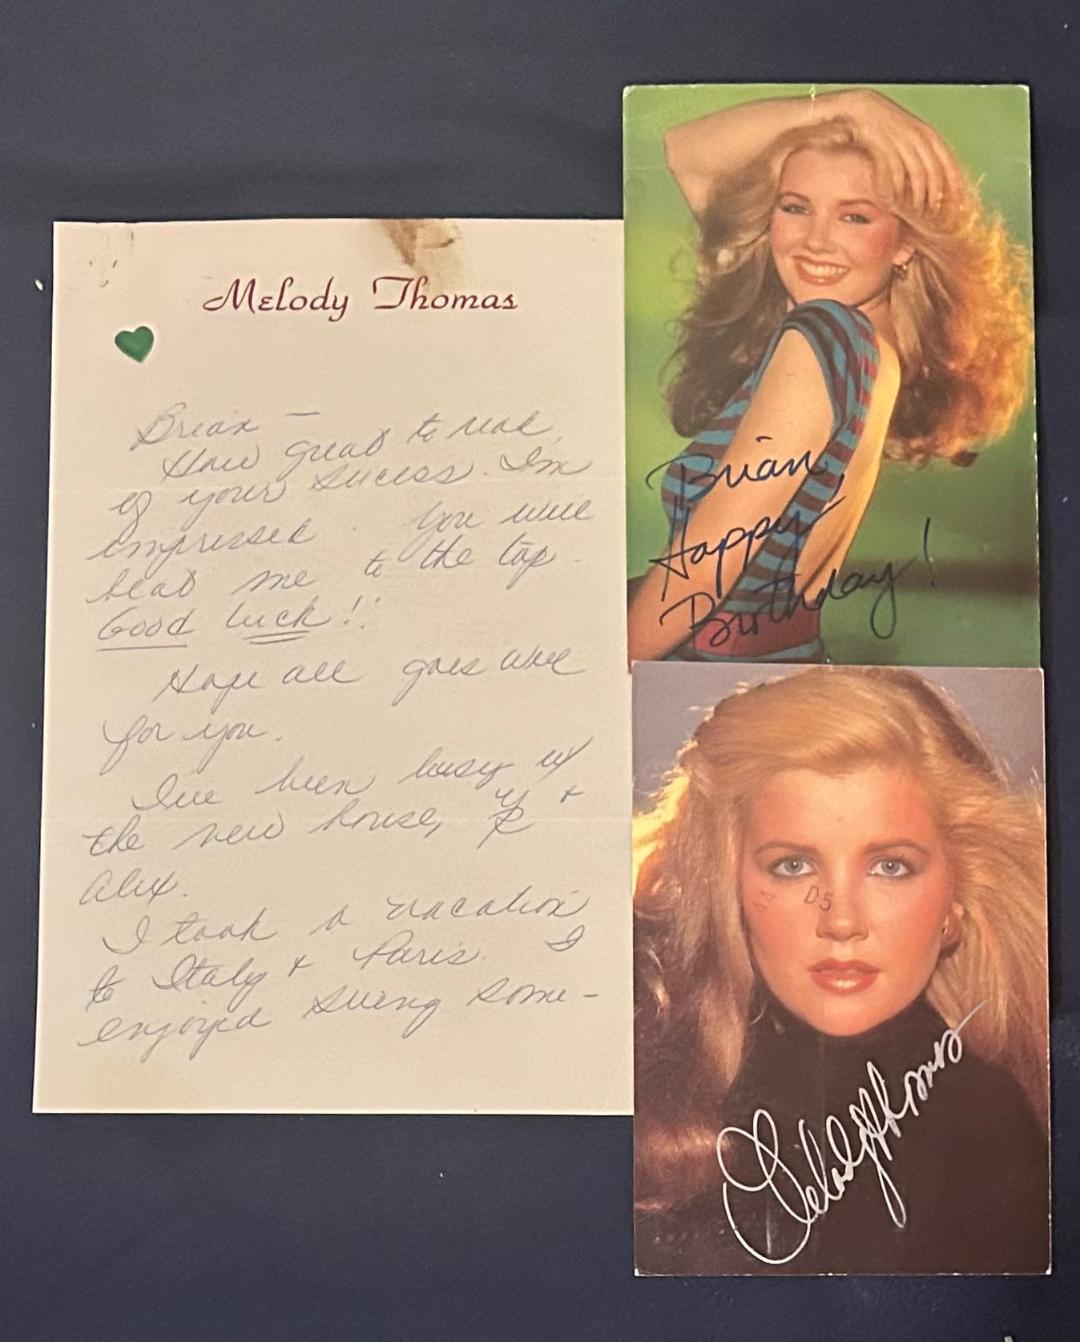 Melody Thomas
Brian —
How great to read
of your sucess. I'm
impressed. You will
beat me to the top.
Good luck!!
Hope all goes well
for you.
I've been busy w/
the new house, Y & R +
Alex.
I took a vacation
to Italy + Paris. I
enjoyed seeing some-
Brian,
Happy
Birthday!
D5
Melody Thomas